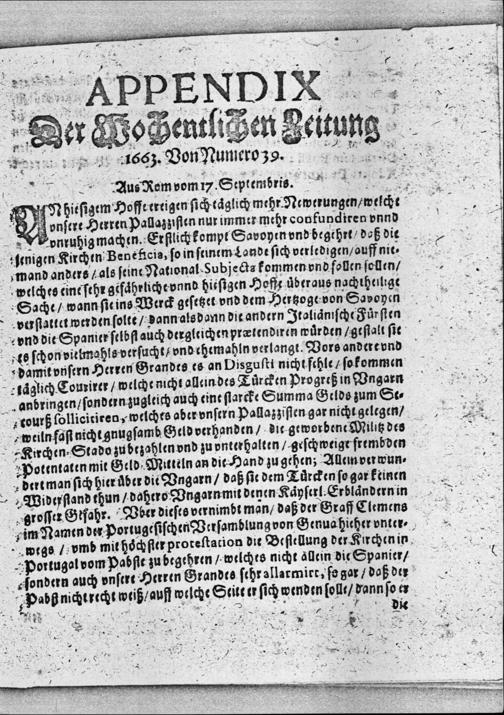 APPENDIX
Der Wochentlichen Zeitung
1663. Von Numero 39.
Aus Rom vom 17. Septembris.
AN hiesigem Hoffe ereigen sich täglich mehr Newerungen/welche
vnsere Herren Pallazzisten nur immer mehr confundiren vnnd
vnruhig machen. Erstlich kompt Savoyen vnd begehrt/ daß die
jenigen Kirchen Beneficia, so in seinem Lande sich verledigen/auff nie-
mand anders/ als seine National-Subjecta kommen vnd fallen sollen/
welches eine sehr gefährliche vnnd hiesigen Hoffe überaus nachtheilige
Sache/ wann sie ins Werck gesetzet vnd dem Hertzoge von Savoyen
verstattet werden solte/ dann als dann die andern Italiänische Fürsten
vnd die Spanier selbst auch dergleichen prætendiren würden/ gestalt sie
es schon vielmahls versucht/ vnd ehemahln verlangt. Vors andere vnd
damit vnsern Herren Grandes es an Disgusti nicht fehle/ so kommen
täglich Courirer/ welche nicht allein des Türcken Progreß in Vngarn
anbringen/sondern zugleich auch eine starcke Summa Gelds zum Se-
courß solliciriren, welches aber vnsern Pallazzisten gar nicht gelegen/
weiln fast nicht gnugsamb Geld verhanden/ die geworbene Militz des
Kirchen-Stado zu bezahlen vnd zu vnterhalten/ geschweige frembden
Potentaten mit Geld-Mitteln an die Hand zu gehen; Allein verwun-
dert man sich hier über die Vngarn/ daß sie dem Türcken so gar keinen
Widerstand thun/ dahero Vngarn mit denen Käyserl. Erbländern in
grosser Gefahr. Vber dieses vernimbt man/ daß der Graff Clemens
im Namen der Portugesischen Versamblung von Genua hieher vnter-
wegs/ vmb mit höchster protestation die Bestellung der Kirchen in
Portugal vom Pabste zu begehren/ welches nicht allein die Spanier/
sondern auch vnsere Herren Grandes sehr allarmirt, so gar/ daß der
Pabst nicht recht weiß/ auff welche Seite er sich wenden solle/ dann so er
die